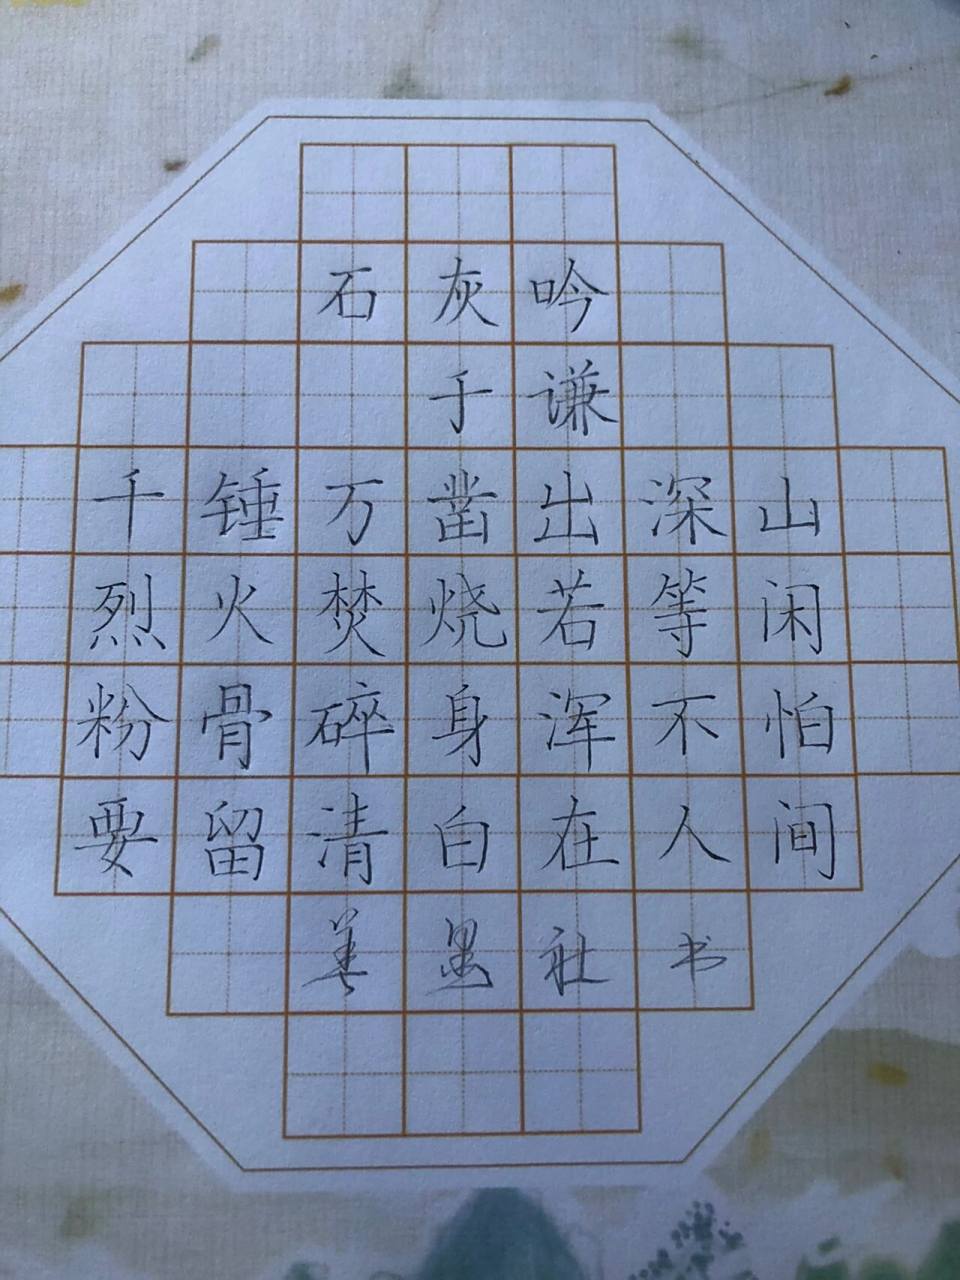 石灰吟
于谦
千锤万凿出深山
烈火焚烧若等闲
粉骨碎身浑不怕
要留清白在人间
社书